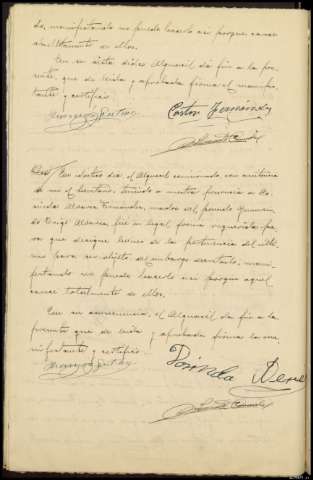 do, manifestando no puede hacerlo asi porque carece
totalmente de ellos.
En su vista dicho Alguacil dá fin a la pre-
sente, que de leida y aprobada firma el manifes-
tante y certifico.
Castor Fernández
Otra
En dicho dia el Alguacil comisionado con asistencia
de mi el Secretario, teniendo a nuestra presencia a Do-
rinda Alvarez Fernández, madre del penado
Alvarez, fué en legal forma requerida pa-
ra que designe bienes de la pertenencia del últi-
mo para ser objeto del embargo decretado, mani-
festando no puede hacerlo asi porque aquel
carece totalmente de ellos.
En su consecuencia, el Alguacil dá fin a la
presente que de leida y aprobada firma la ma-
nifestante y certifico.
Dorinda